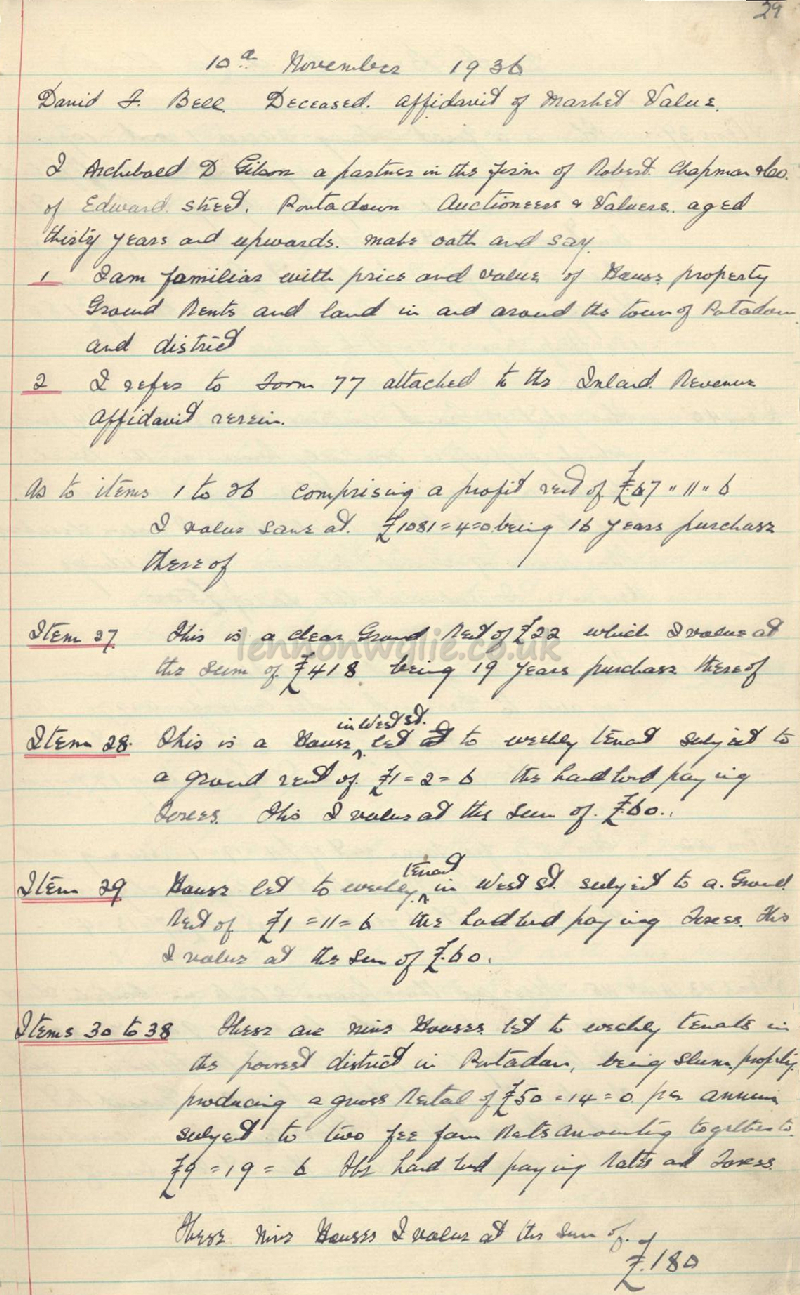 29
10th November 1936
David F. Bell Deceased. Affidavit of Market Value.
I Archibald D Gibson a partner in the firm of Robert Chapman & Co.
of Edward Street, Portadown Auctioneers & Valuers. aged
thirty years and upwards. make oath and say
1 I am familiar with price and value of House property
Ground Rents and land in and around the town of Portadown
and district
2 I refer to Form 77 attached to the Inland Revenue
Affidavit herein.
As to items 1 to 26 comprising a profit rent of £67 " 11 " 6
I value same at £1081 = 4 = 0 being 16 years purchase
thereof
Item 27 This is a clear Ground Rent of £22 which I value at
lennonwylie.co.uk
the sum of £418 being 19 years purchase thereof
Item 28. This is a House in West St. let to weekly tenant subject to
a ground rent of £1 = 2 = 6 the landlord paying
Taxes. This I value at the sum of £60.
Item 29 House let to weekly tenant in West St. subject to a Ground
Rent of £1 = 11 = 6 the landlord paying Taxes. This
I value at the sum of £60.
Items 30 to 38 These are nine Houses let to weekly tenants in
the poorest district in Portadown, being slum property,
producing a gross Rental of £50 = 14 = 0 per annum
subject to two fee farm Rents amounting together to
£9 = 19 = 6 the landlord paying Rates and Taxes.
These nine Houses I value at the sum of
£180